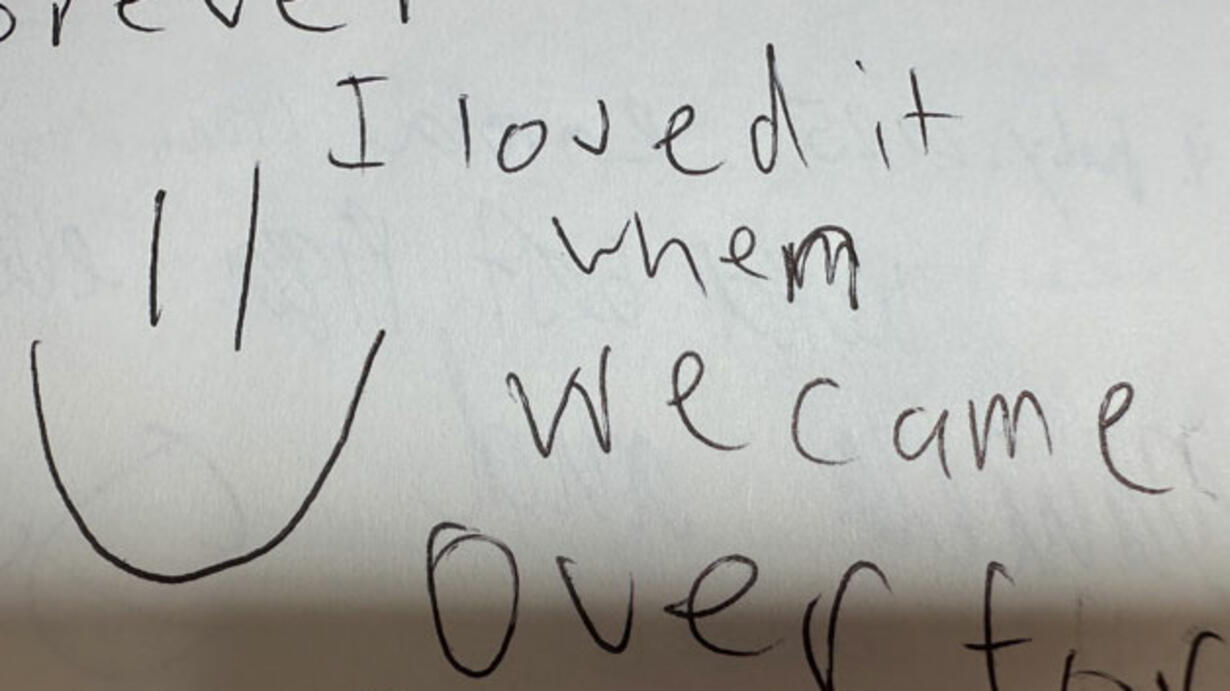 I loved it
whem
we came
over for